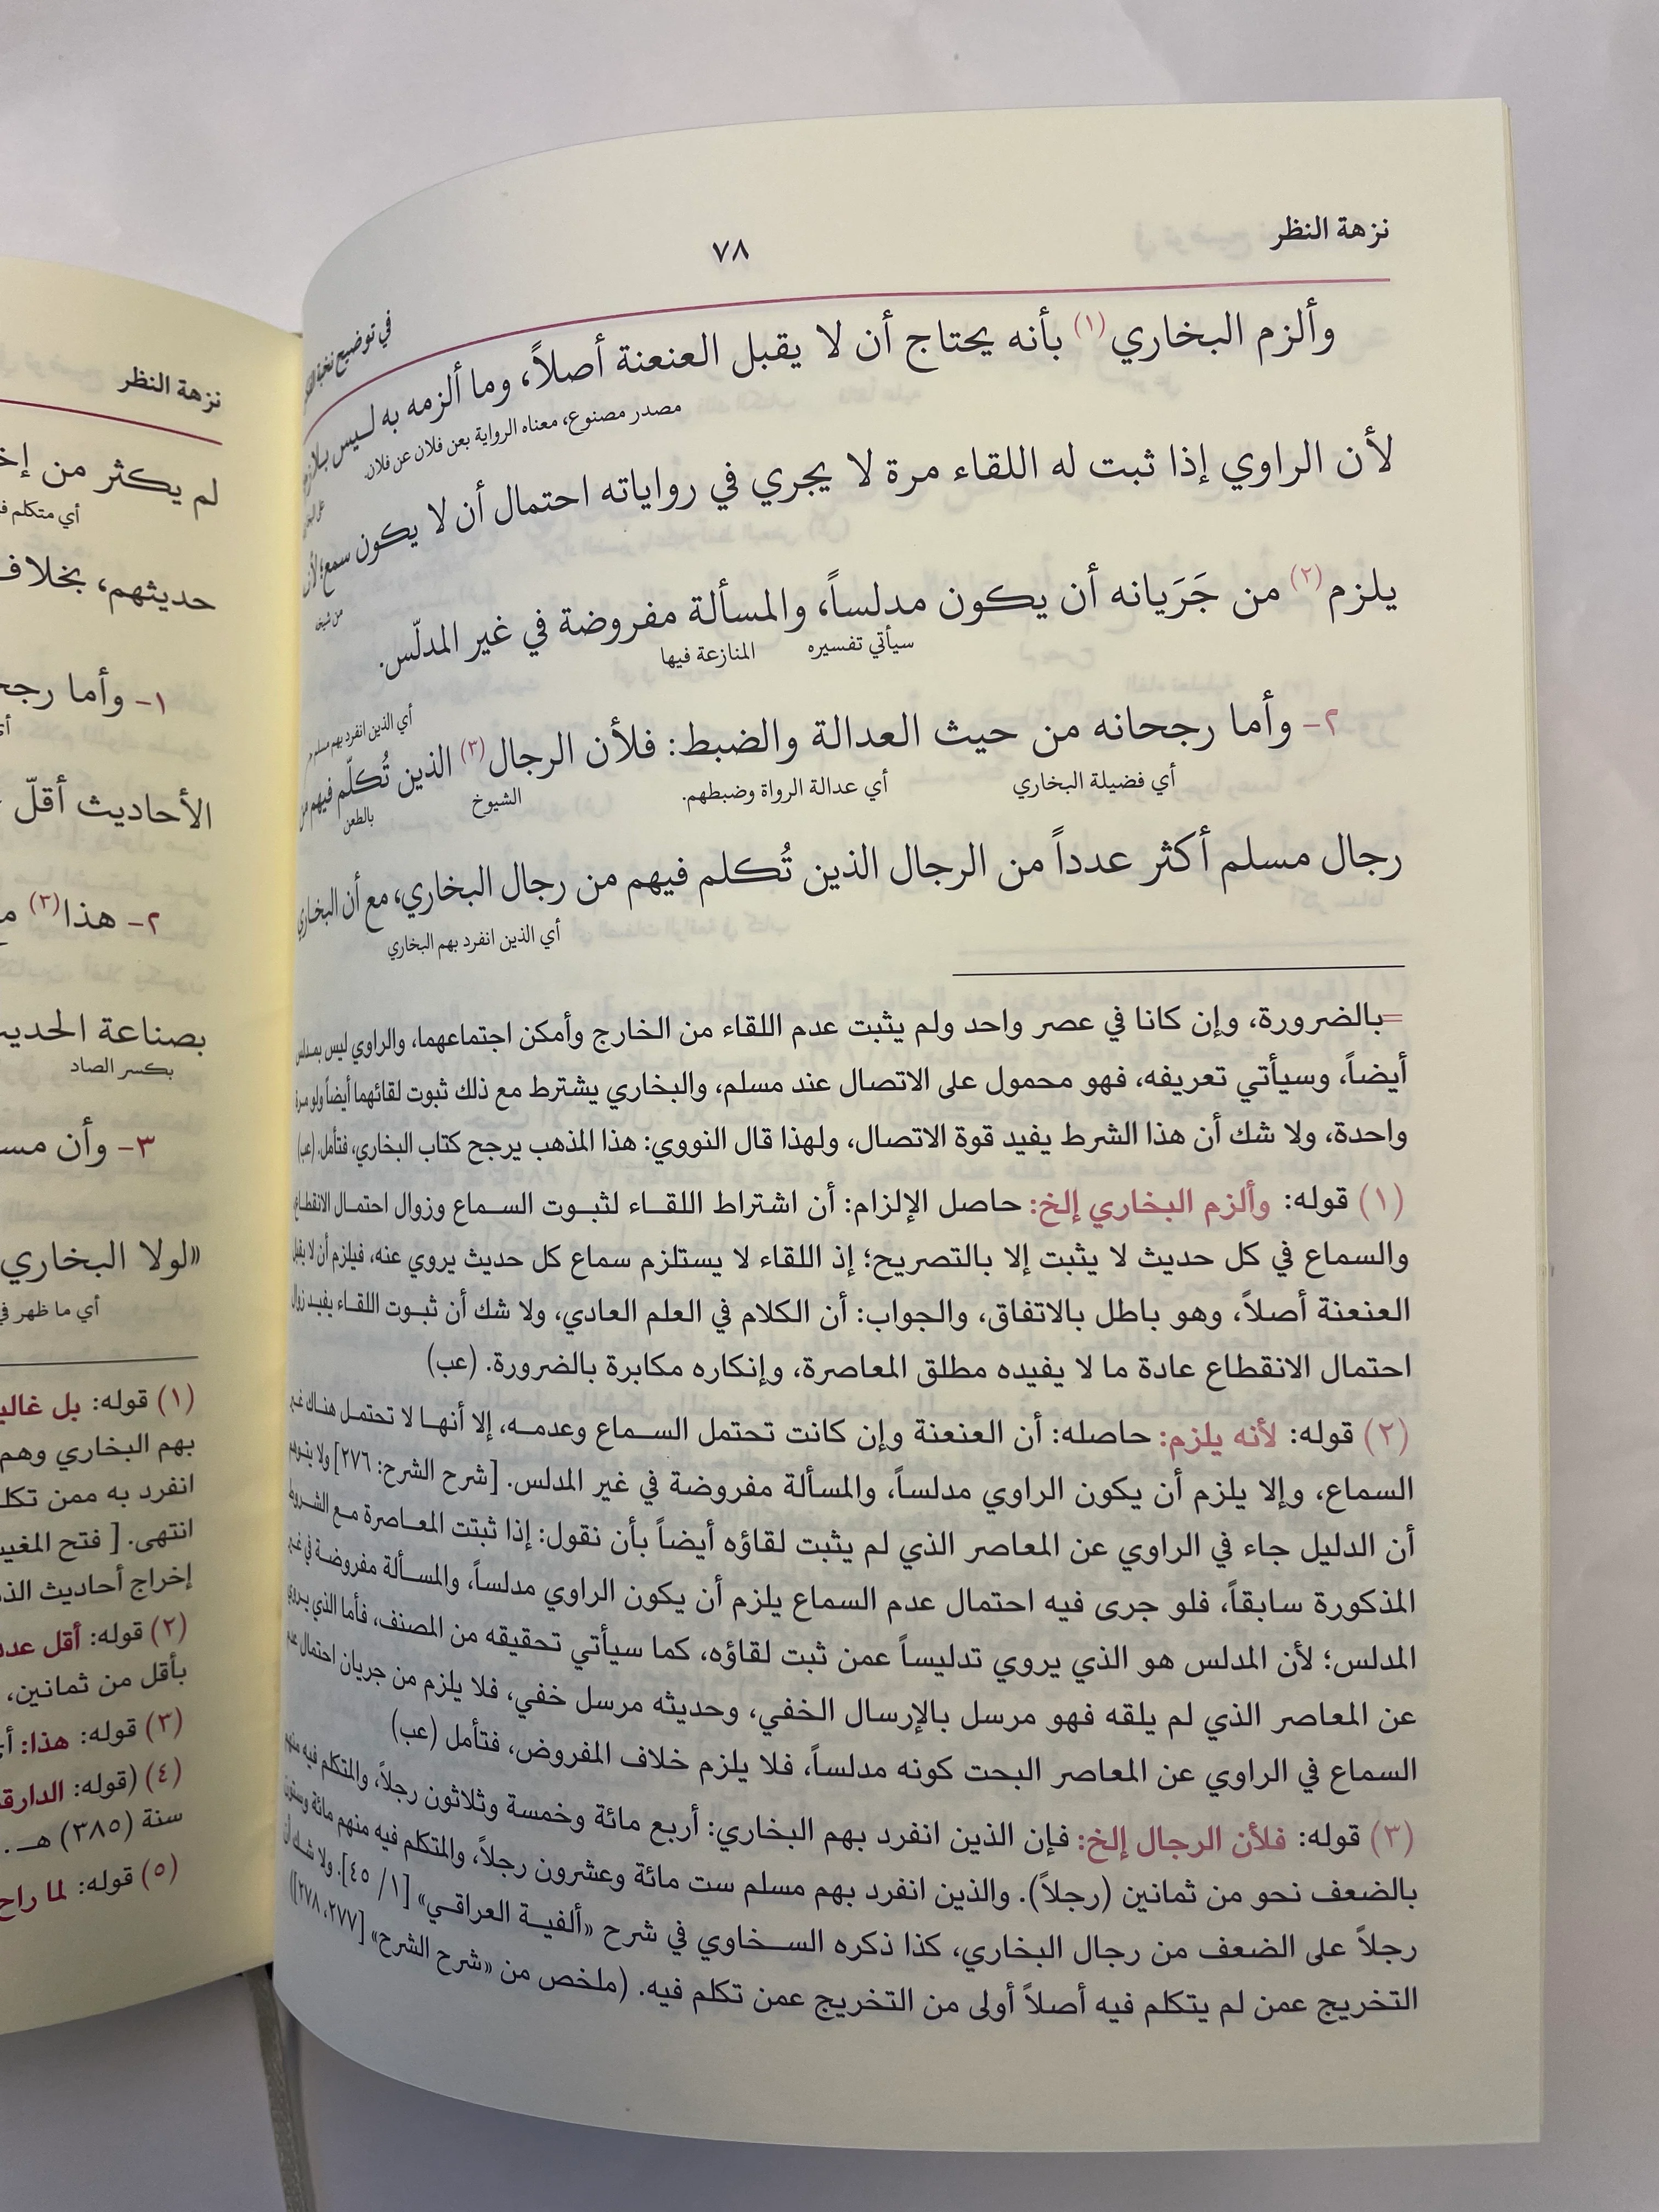 نزهة النظر
٧٨
في توضيح نخبة
وألزم البخاري(١) بأنه يحتاج أن لا يقبل العنعنة أصلاً، وما ألزمه به ليس بلازم
مصدر مصنوع، معناه الرواية بعن فلان عن فلان.
لأن الراوي إذا ثبت له اللقاء مرة لا يجري في رواياته احتمال أن لا يكون سمع؛ لأنه
من شيخه
يلزم(٢) من جَرَيانه أن يكون مدلساً، والمسألة مفروضة في غير المدلّس.
سيأتي تفسيره
المنازعة فيها
أي الذين انفرد بهم مسلم
٢- وأما رجحانه من حيث العدالة والضبط: فلأن الرجال(٣) الذين تُكلّم فيهم من
أي فضيلة البخاري
أي عدالة الرواة وضبطهم.
الشيوخ
بالطعن
رجال مسلم أكثر عدداً من الرجال الذين تُكلم فيهم من رجال البخاري، مع أن البخاري
أي الذين انفرد بهم البخاري
=بالضرورة، وإن كانا في عصر واحد ولم يثبت عدم اللقاء من الخارج وأمكن اجتماعهما، والراوي ليس بمدلس
أيضاً، وسيأتي تعريفه، فهو محمول على الاتصال عند مسلم، والبخاري يشترط مع ذلك ثبوت لقائهما أيضاً ولو مرة
واحدة، ولا شك أن هذا الشرط يفيد قوة الاتصال، ولهذا قال النووي: هذا المذهب يرجح كتاب البخاري، فتأمل. (عب)
(١) قوله: وألزم البخاري إلخ: حاصل الإلزام: أن اشتراط اللقاء لثبوت السماع وزوال احتمال الانقطاع
والسماع في كل حديث لا يثبت إلا بالتصريح؛ إذ اللقاء لا يستلزم سماع كل حديث يروي عنه، فيلزم أن لا يقبل
العنعنة أصلاً، وهو باطل بالاتفاق، والجواب: أن الكلام في العلم العادي، ولا شك أن ثبوت اللقاء يفيد زوال
احتمال الانقطاع عادة ما لا يفيده مطلق المعاصرة، وإنكاره مكابرة بالضرورة. (عب)
(٢) قوله: لأنه يلزم: حاصله: أن العنعنة وإن كانت تحتمل السماع وعدمه، إلا أنها لا تحتمل هناك غير
السماع، وإلا يلزم أن يكون الراوي مدلساً، والمسألة مفروضة في غير المدلس. [شرح الشرح: ٢٧٦] ولا يتوهم
أن الدليل جاء في الراوي عن المعاصر الذي لم يثبت لقاؤه أيضاً بأن نقول: إذا ثبتت المعاصرة مع الشروط
المذكورة سابقاً، فلو جرى فيه احتمال عدم السماع يلزم أن يكون الراوي مدلساً، والمسألة مفروضة في غير
المدلس؛ لأن المدلس هو الذي يروي تدليساً عمن ثبت لقاؤه، كما سيأتي تحقيقه من المصنف، فأما الذي يروي
عن المعاصر الذي لم يلقه فهو مرسل بالإرسال الخفي، وحديثه مرسل خفي، فلا يلزم من جريان احتمال عدم
السماع في الراوي عن المعاصر البحت كونه مدلساً، فلا يلزم خلاف المفروض، فتأمل (عب)
(٣) قوله: فلأن الرجال إلخ: فإن الذين انفرد بهم البخاري: أربع مائة وخمسة وثلاثون رجلاً، والمتكلم فيه منهم
بالضعف نحو من ثمانين (رجلاً). والذين انفرد بهم مسلم ست مائة وعشرون رجلاً، والمتكلم فيه منهم مائة وستون
رجلاً على الضعف من رجال البخاري، كذا ذكره السخاوي في شرح «ألفية العراقي» [١/ ٤٥]. ولا شك أن
التخريج عمن لم يتكلم فيه أصلاً أولى من التخريج عمن تكلم فيه. (ملخص من «شرح الشرح» [٢٧٧، ٢٧٨])
نزهة النظر
لم يكثر من
أي متكلم
حديثهم، بخلاف
١- وأما
الأحاديث أقلّ
٢- هذا(٣)
بصناعة الحديث
بكسر الصاد
٣- وأن
«لولا البخاري
أي ما ظهر
(١) قوله: بل
بهم البخاري وهم
انفرد به ممن
انتهى. [ فتح
إخراج أحاديث
(٢) قوله: أقل
بأقل من ثمانين،
(٣) قوله: هذا:
(٤) (قوله:
سنة (٣٨٥) هـ .
(٥) قوله: لما راح